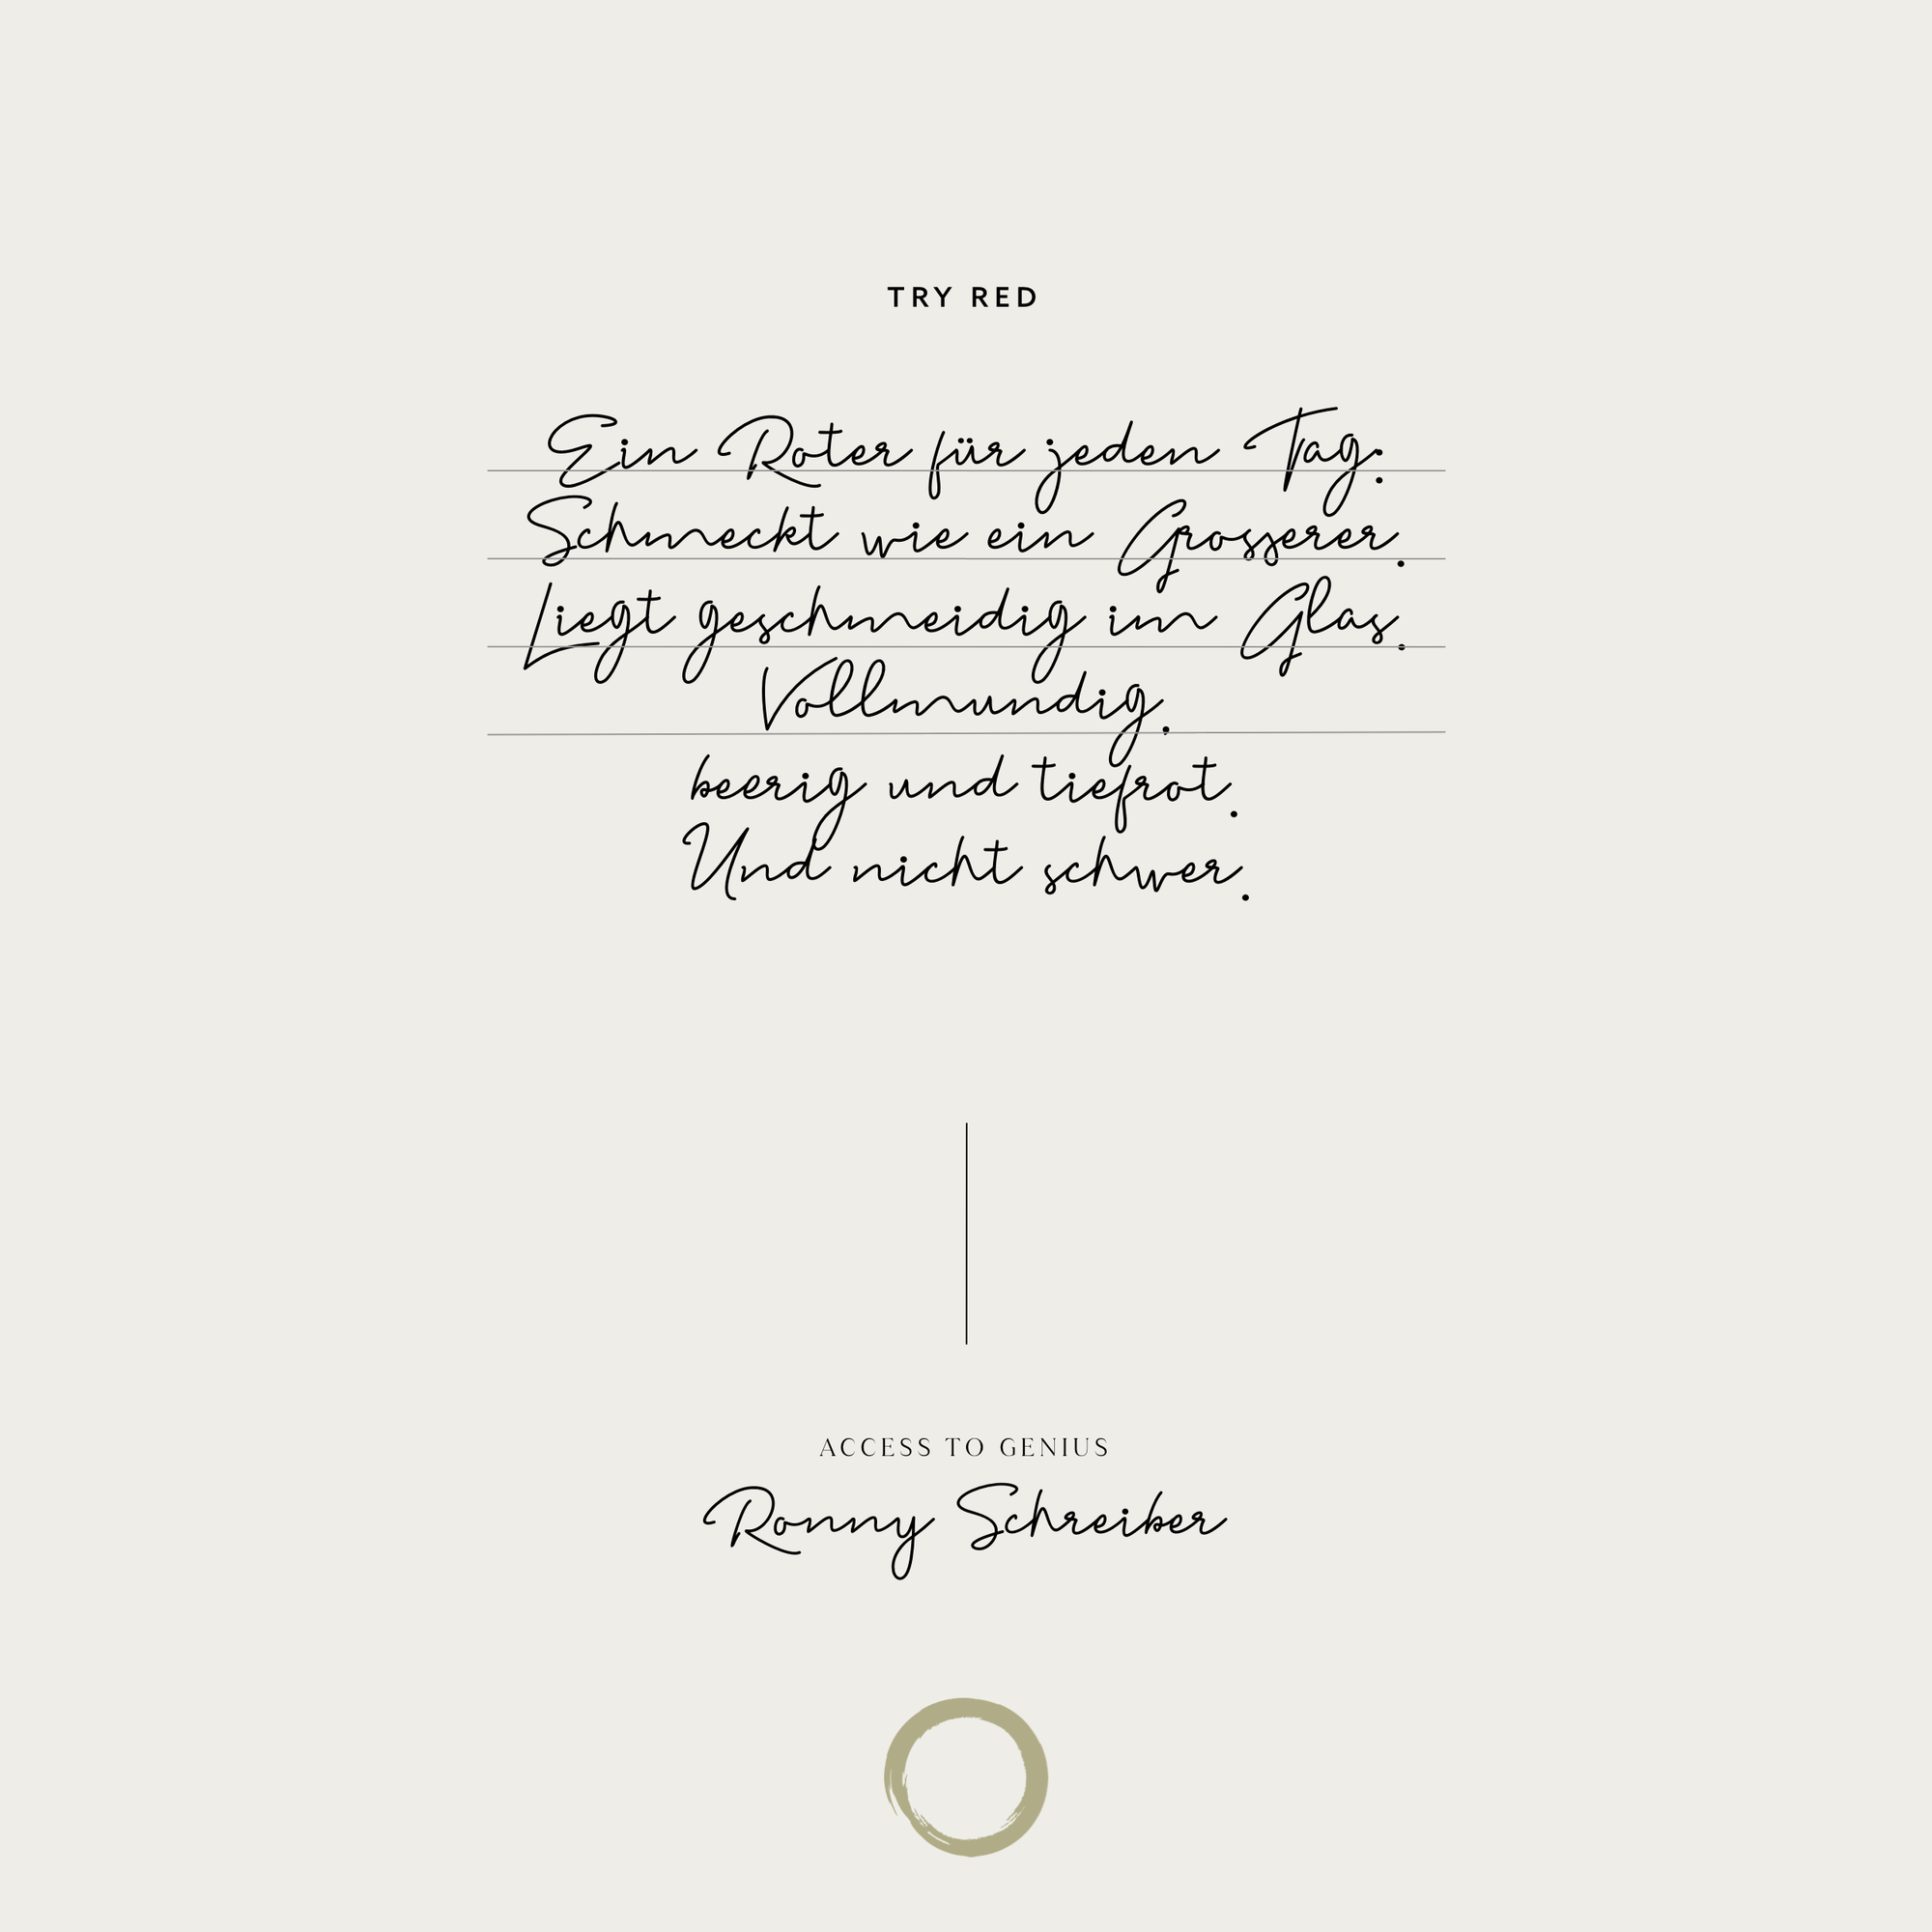 TRY RED
Ein Roter für jeden Tag:
Schmeckt wie ein Grosserer.
Liegt geschmeidig im Glas.
Vollmundig.
beerig und tiefrot.
Und nicht schwer.
ACCESS TO GENIUS
Ronny Schreiber